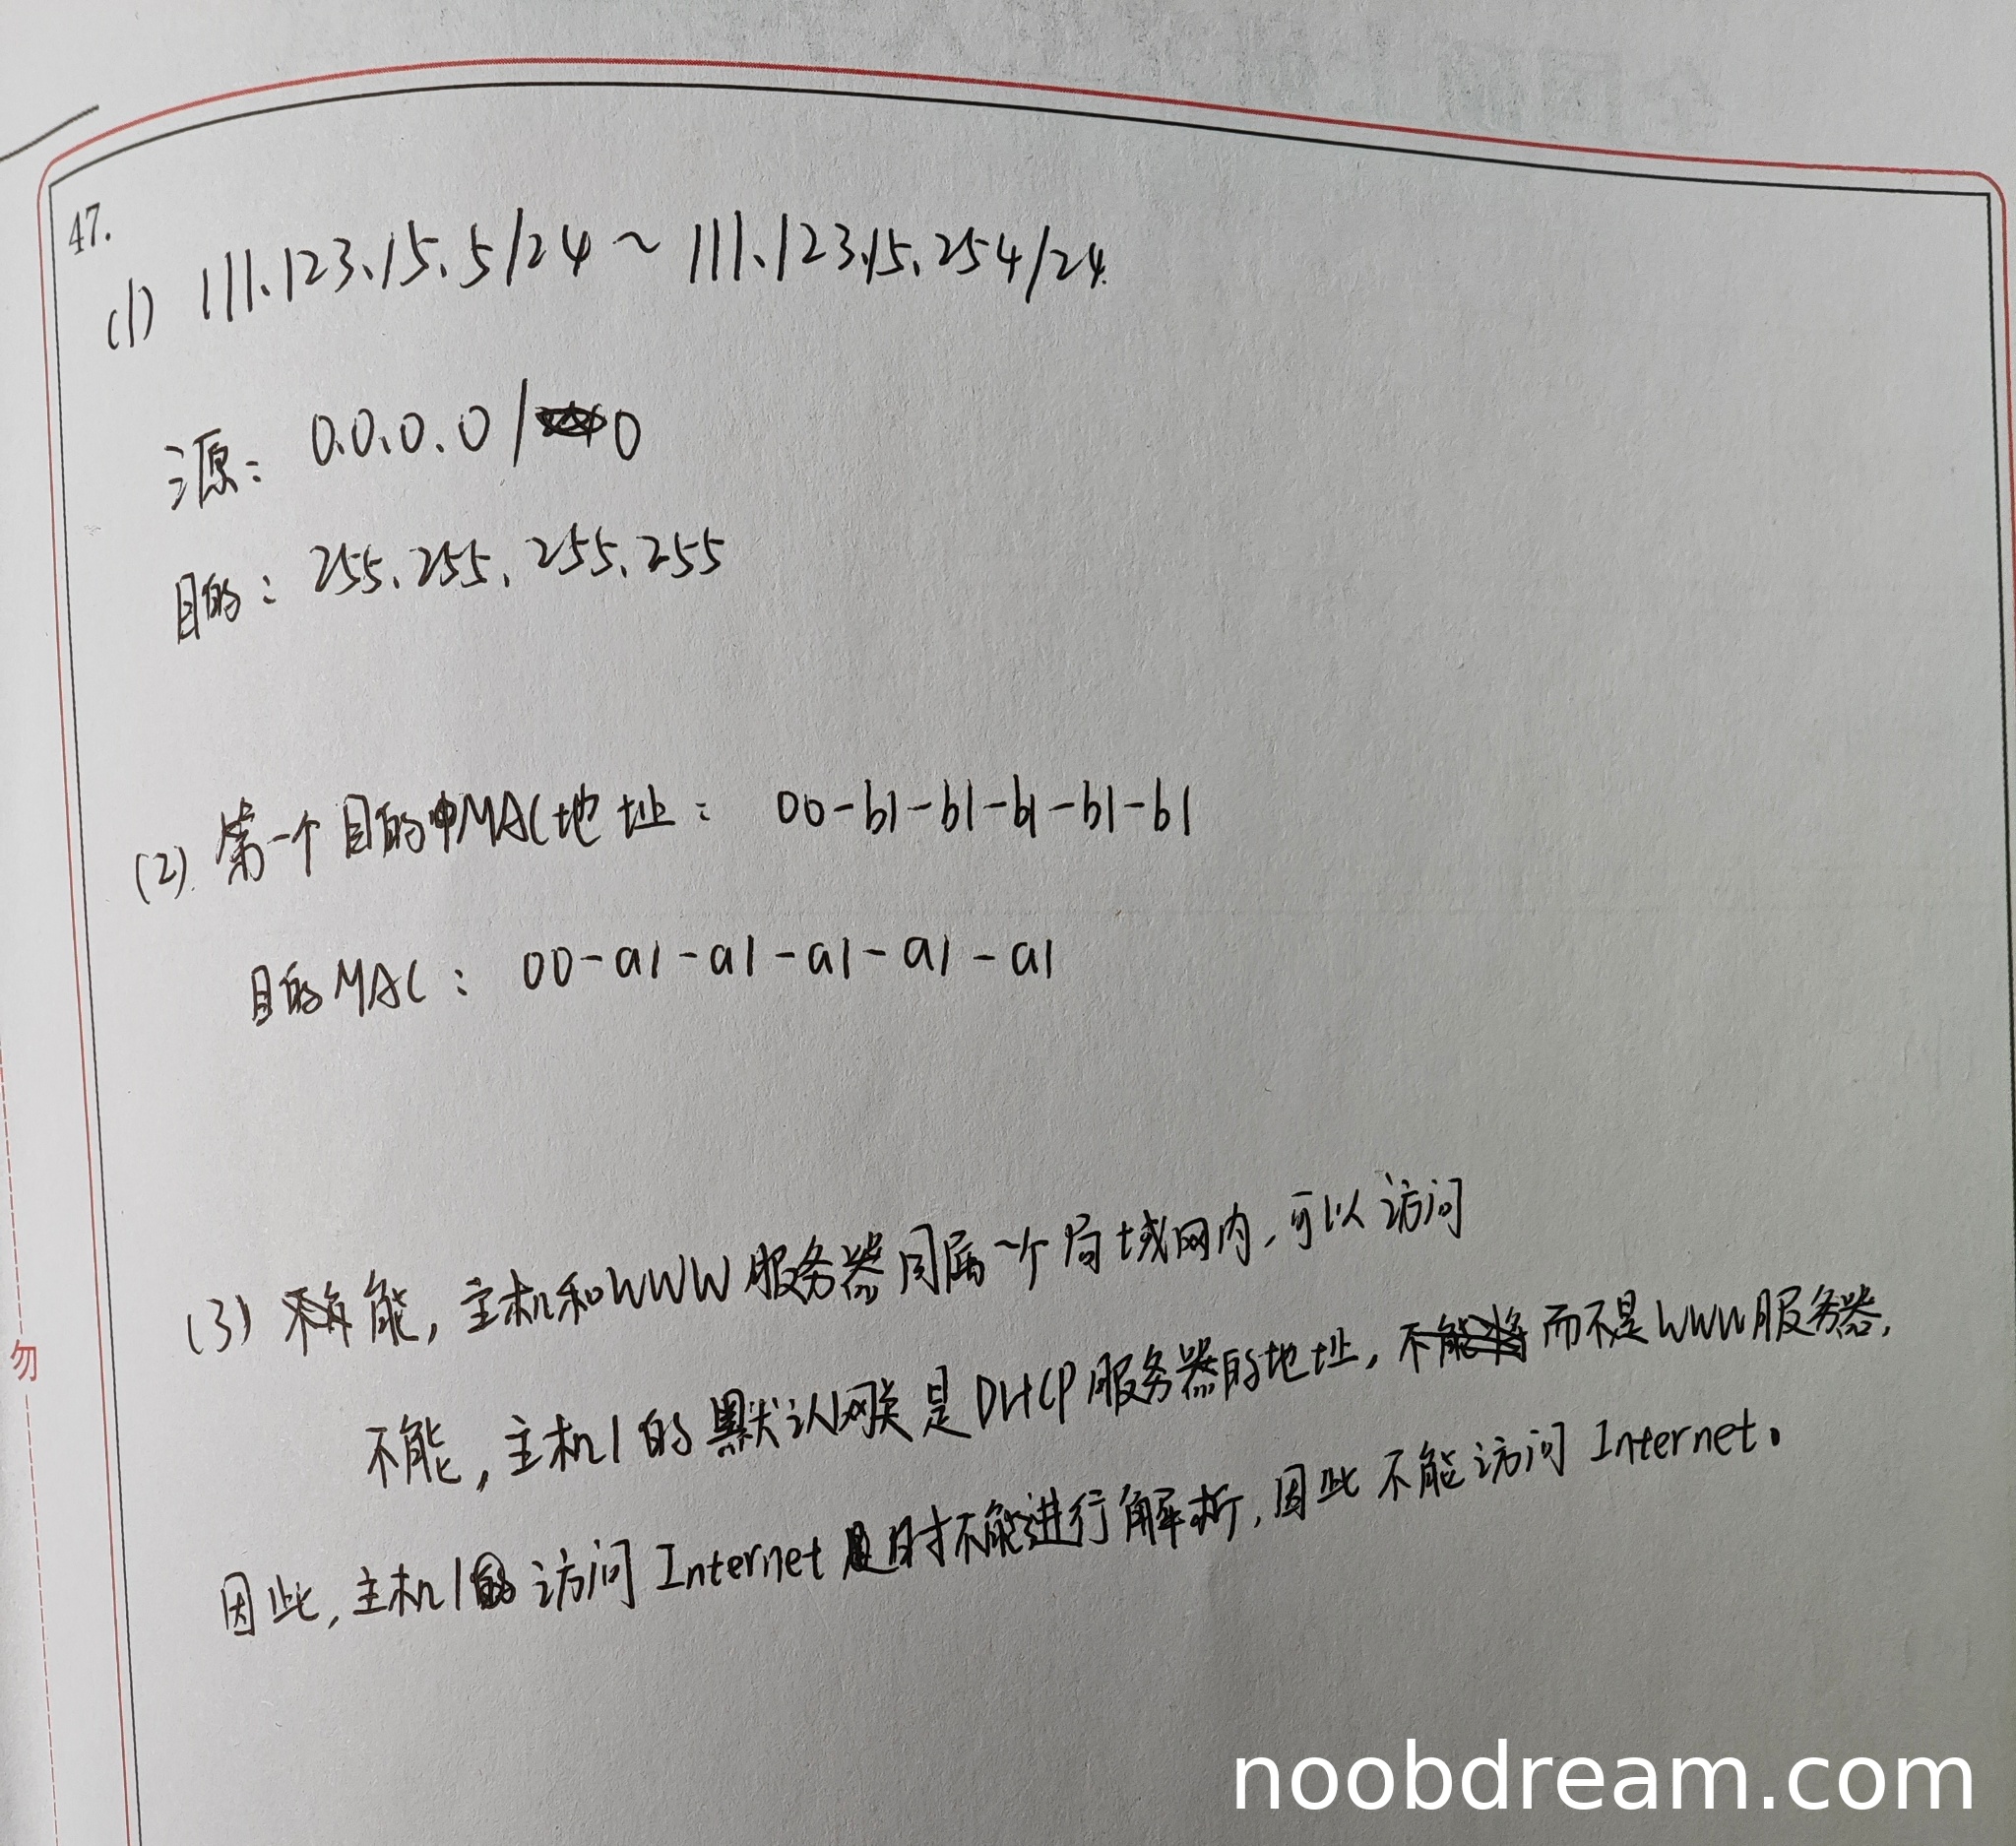 47.
(1) 111.123.15.5/24 ~ 111.123.15.254/24.
源: 0.0.0.0/0
目的: 255.255.255.255
(2). 第一个目的MAC地址: 00-b1-b1-b1-b1-b1
目的MAC: 00-a1-a1-a1-a1-a1
(3) 能, 主机和WWW服务器同属一个局域网内, 可以访问
不能, 主机1的默认网关是DHCP服务器的地址, 而不是WWW服务器,
因此, 主机1访问Internet时不能进行解析, 因此不能访问Internet。
勿
noobdream.com